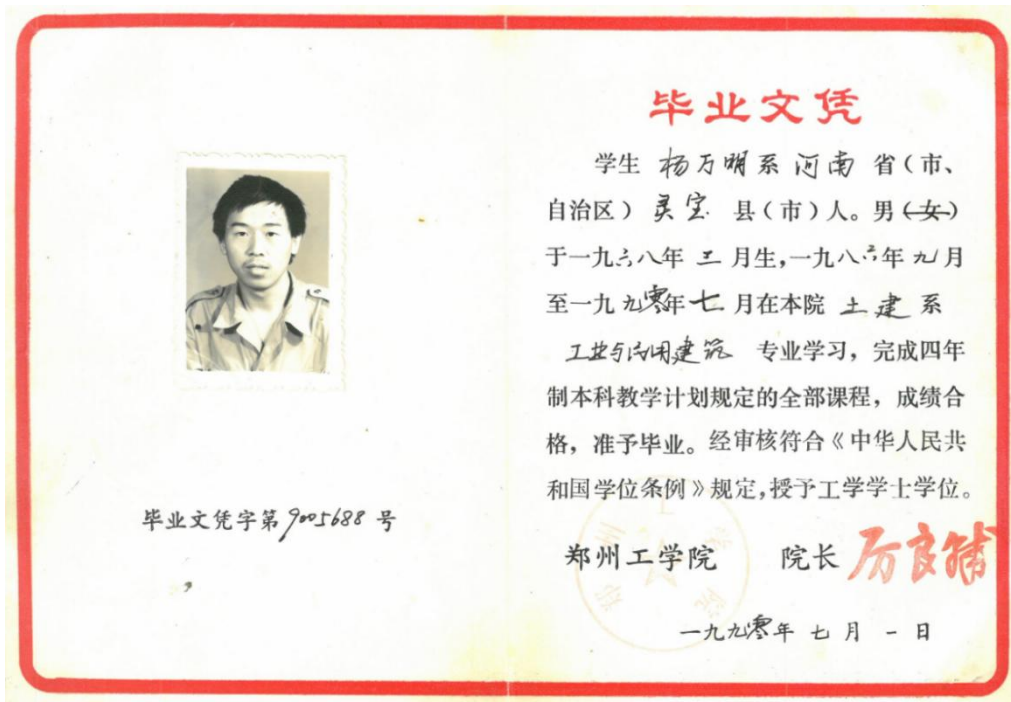 毕业文凭
学生 杨万明系 河南 省（市、
自治区）灵宝 县（市）人。男（女）
于一九六八年 三 月生，一九八六年 九 月
至一九九零年 七 月在本院 土建 系
工业与民用建筑 专业学习，完成四年
制本科教学计划规定的全部课程，成绩合
格，准予毕业。经审核符合《中华人民共
和国学位条例》规定，授予工学学士学位。
郑州工学院 院长 厉良辅
一九九零年 七 月 一 日
毕业文凭字第9005688号
郑州工学院